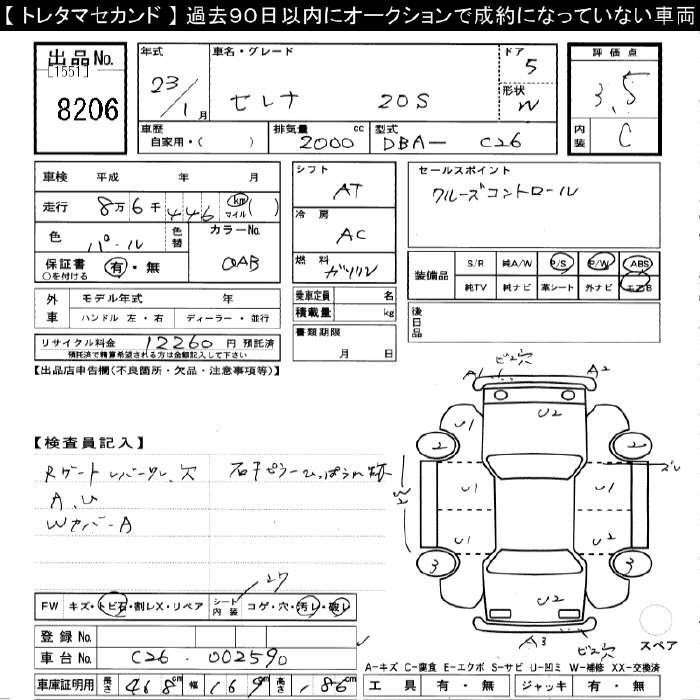 【 トレタマセカンド 】 過去90日以内にオークションで成約になっていない車両
出品No.
[1551]
8206
年式
23/1月
車名・グレード
セレナ 20S
ドア
5
形状
W
評価点
3.5
内装
C
車歴
自家用・( )
排気量 2000 cc
型式
DBA- C26
車検 平成 年 月
走行 8万6千446 km マイル ( )
色 パール 色替
カラーNo.
QAB
保証書 有・無
○を付ける
シフト
AT
冷房
AC
燃料
ガソリン
セールスポイント
クルーズコントロール
装備品
S/R 純A/W P/S P/W ABS
純TV 純ナビ 革シート 外ナビ エアB
外車
モデル年式 年
ハンドル 左・右 ディーラー・並行
乗車定員 名
積載量 kg
後日品
リサイクル料金 12260 円 預託済
預託済で精算希望される方は金額記入して下さい
書類期限
月 日
【出品店申告欄(不良箇所・欠品・注意事項等)】
【検査員記入】
Rゲート 穴
A、U
Wカバー A
FW キズ・トビ石・割レX・リペア
シート内装 コゲ・穴・汚レ・破レ
登録No.
車台No. C26-002590
車庫証明用 長さ 468cm 幅 169cm 高さ 186cm
A1 ビス穴 A2
U1 U2 U1
2 2
ズレ
W2 U1 U1
U1 U2
3 3
U2
A3 ビス穴
スペア
A-キズ C-腐食 E-エクボ S-サビ U-凹ミ W-補修 XX-交換済
工具 有・無 ジャッキ 有・無